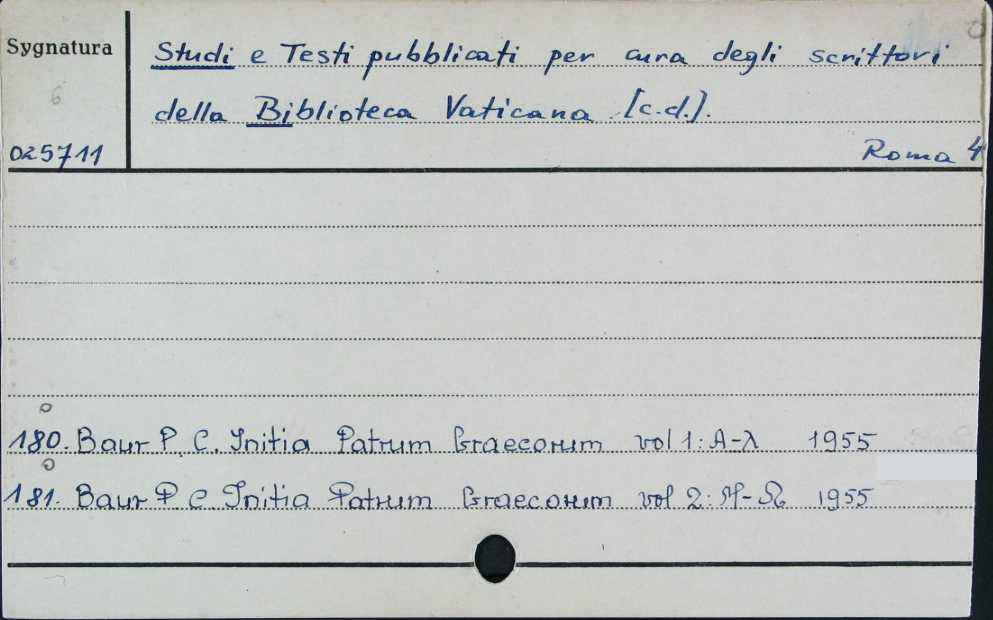 Sygnatura
Studi e Testi pubblicati per cura degli scrittori
6
della Biblioteca Vaticana [c.d.].
025711
Roma 4
180. Baur P. C. Initia Patrum Graecorum vol 1: A-λ 1955
181. Baur P C Initia Patrum Graecorum vol 2: M-Ω 1955